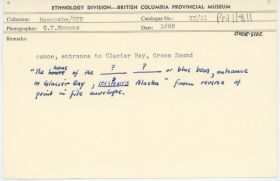 ETHNOLOGY DIVISION—BRITISH COLUMBIA PROVINCIAL MUSEUM
Collection: Newcombe/GTE Catalogue No.: PN 11811
Photographer: G.T.Emmons Date: 1888
Remarks: OVER-SIZE
canoe, entrance to Glacier Bay, Cross Sound
home
"The house of the ? ? or blue bear, entrance
to Glacier Bay, Alaska" from reverse of
print in file envelope.